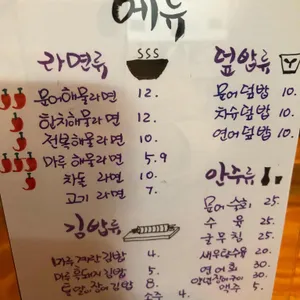 메뉴
라면류
문어해물라면 12.
한치해물라면 12.
전복해물라면 10.
마루 해물라면 5.9
차돌 라면 10.
고기 라면 7.
김밥류
4.
마루 김밥 5.
김밥 8.
소주 4.
덮밥류
문어덮밥 10.
차슈덮밥 10.
연어덮밥 10.
안주류
문어 숙회 25.
수육 25.
굴무침 25.
새우탕수육 20.
연어회 30.
30.
맥주 5.